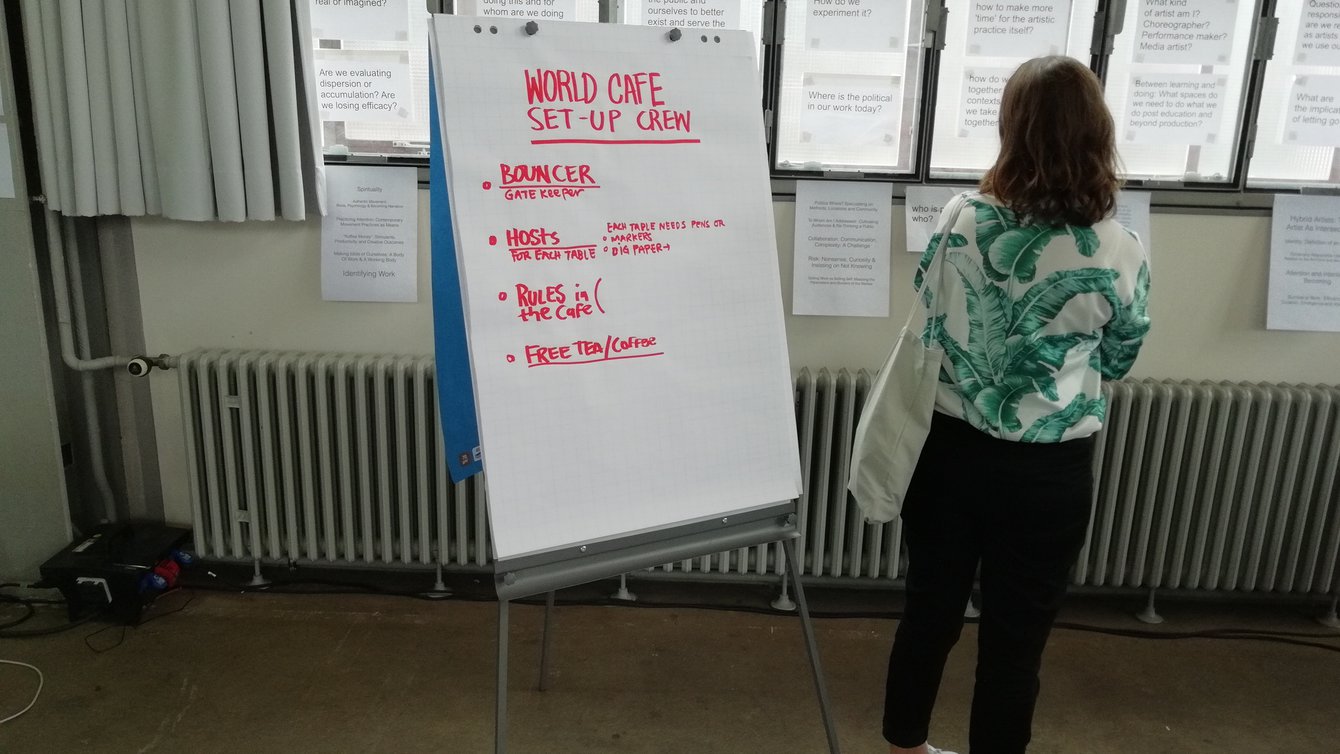 real or imagined?
Are we evaluating
dispersion or
accumulation? Are
we losing efficacy?
doing this and for
whom are we doing
the public and
ourselves to better
exist and serve the
How do we
experiment it?
Where is the political
in our work today?
how to make more
'time' for the artistic
practice itself?
how do w
together
contexts
we take
together
What kind
of artist am I?
Choreographer?
Performance maker?
Media artist?
Between learning and
doing: What spaces do
we need to do what we
do post education and
beyond production?
Question
respon
are we re
as artists
we use ou
What are
the implicat
of letting go
WORLD CAFE
SET-UP CREW
BOUNCER
GATE KEEPER
HOSTS
FOR EACH TABLE
EACH TABLE NEEDS PENS OR
MARKERS
BIG PAPER→
RULES in
the Cafe (
FREE TEA/COFFEE
Spirituality
Authentic Movement
Practicing Attention: Contemporary
Movement Practices as Means
Productivity and Creative Outcomes
Making Idols of Ourselves: A Body
Of Work & A Working Body
Identifying Work
Methods, Locations and Community
Audiences & Not Knowing Them
Collaboration: Communication,
Complexity: A Challenge
Risk: Nonsense, Curiosity &
Insisting on Not Knowing
who is
who?
Hybrid Artist
Artist As Inter
Attention and Inter
Becoming